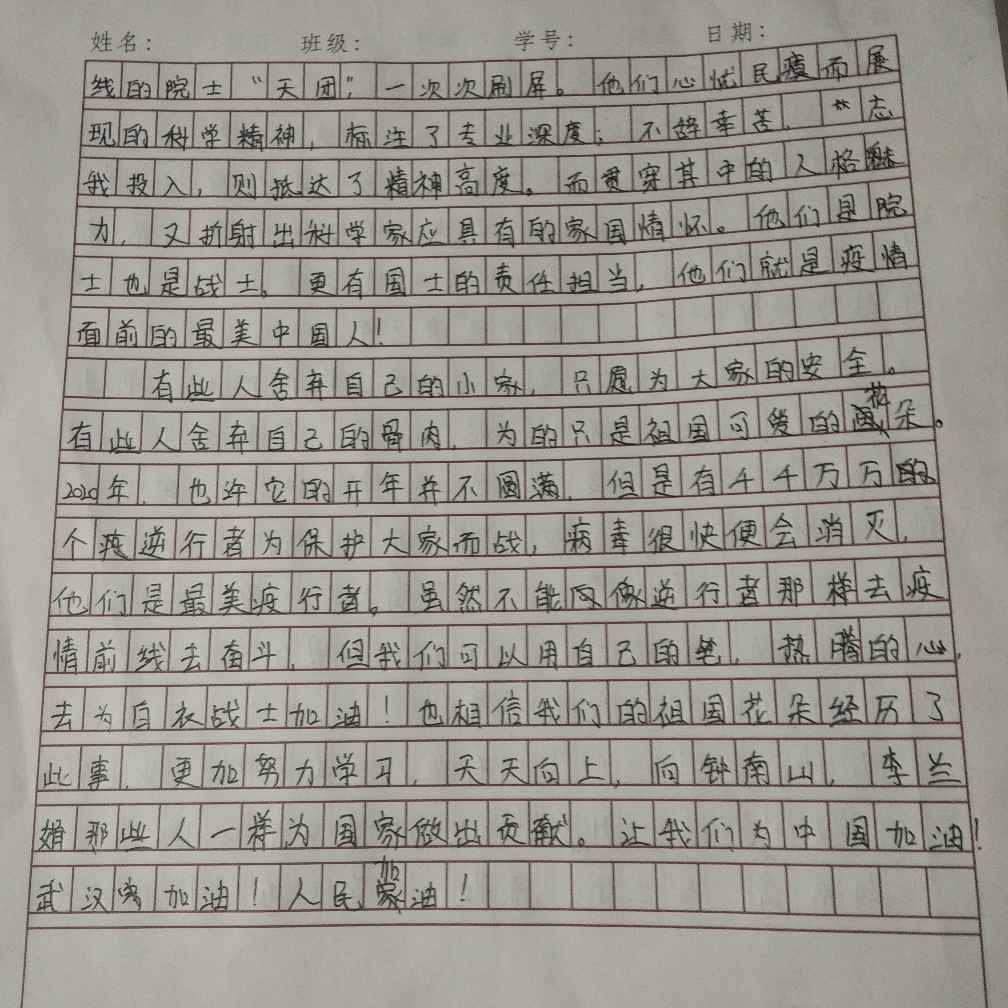 姓名： 班级： 学号： 日期：
线的院士“天团”，一次次刷屏。他们心忧民瘼而展
现的科学精神，标注了专业深度；不辞幸苦，忘
我投入，则抵达了精神高度。而贯穿其中的人格魅
力，又折射出科学家应具有的家国情怀。他们是院
士也是战士。更有国士的责任担当，他们就是疫情
面前的最美中国人！
有些人舍弃自己的小家，只愿为大家的安全。
有些人舍弃自己的骨肉，为的只是祖国可爱的花朵。
2020年，也许它的开年并不圆满，但是有千千万万的
个逆行者为保护大家而战，病毒很快便会消灭，
他们是最美疫行者。虽然不能像逆行者那样去疫
情前线去奋斗，但我们可以用自己的笔，热腾的心，
去为白衣战士加油！也相信我们的祖国花朵经历了
此事，更加努力学习，天天向上，向钟南山，李兰
娟那些人一样为国家做出贡献。让我们为中国加油！
武汉加油！人民加油！